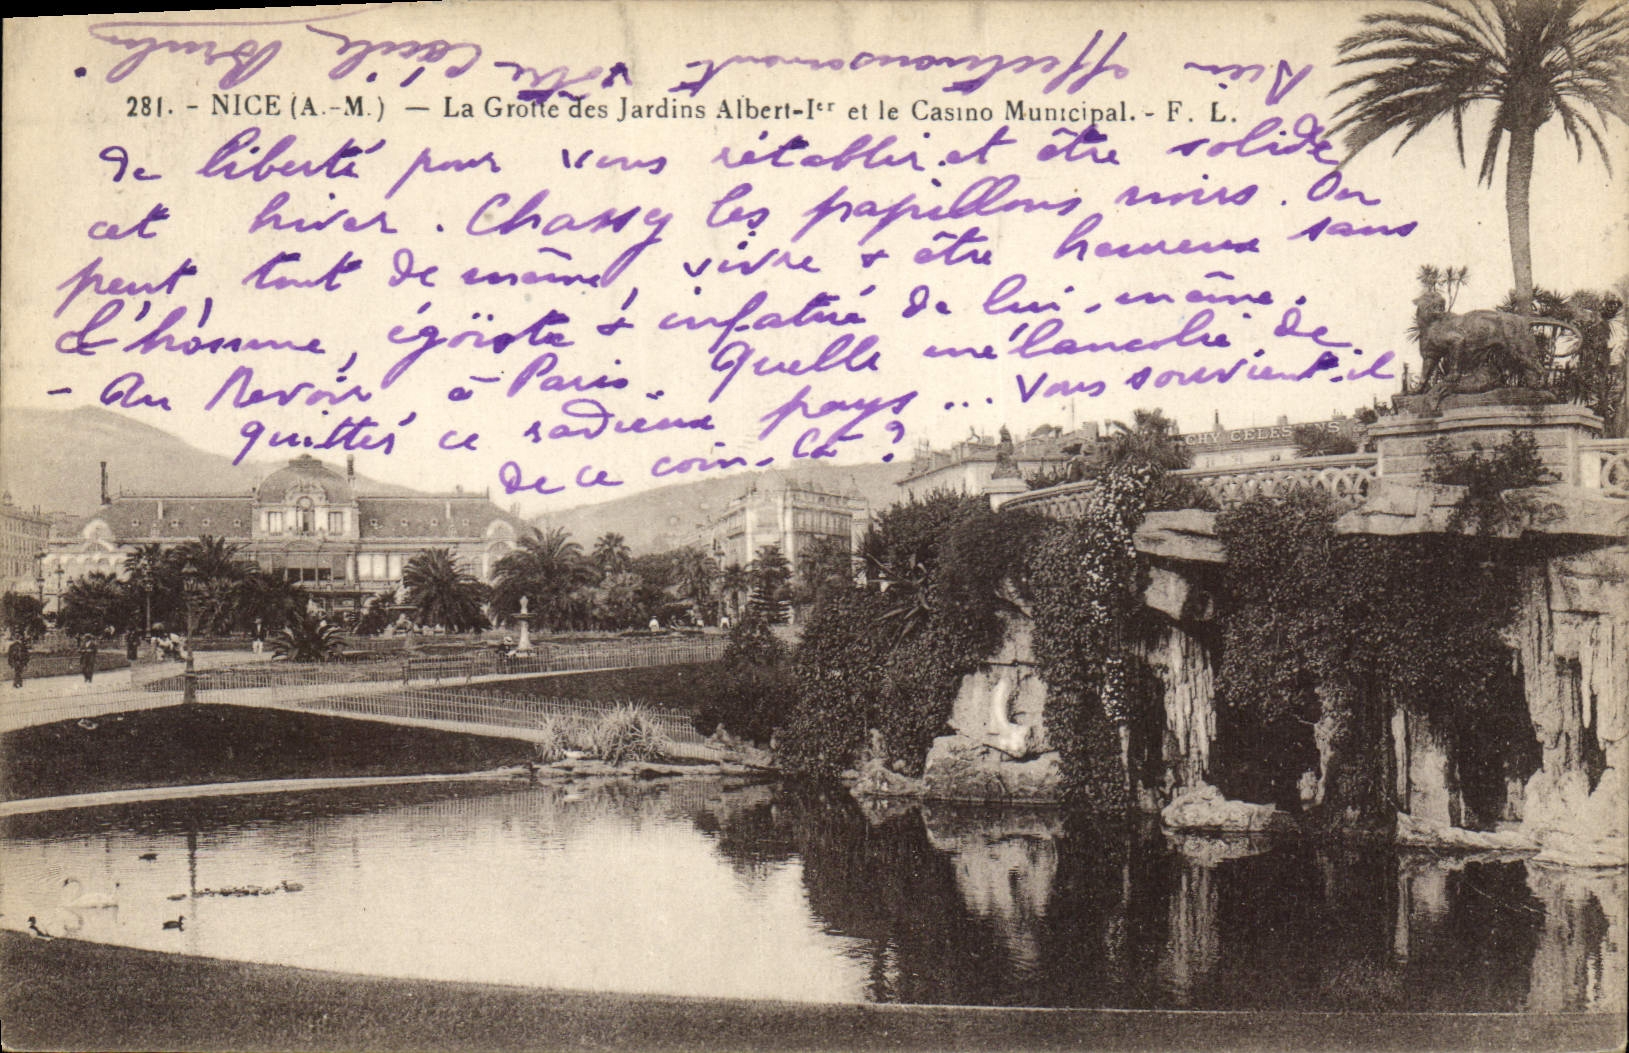 Bien affectueusement votre Cécile
281. - NICE (A.-M.) — La Grotte des Jardins Albert-Ier et le Casino Municipal. - F. L.
de liberté pour vous rétablir et être solide
cet hiver. Chassez les papillons noirs. On
peut tout de même, vivre & être heureux sans
l'homme, égoïste & infatué de lui-même.
- Au Revoir à Paris. Quelle mélancolie de
quitter ce radieux pays... Vous souvient-il
de ce coin-là ?
CHY CELESTINS